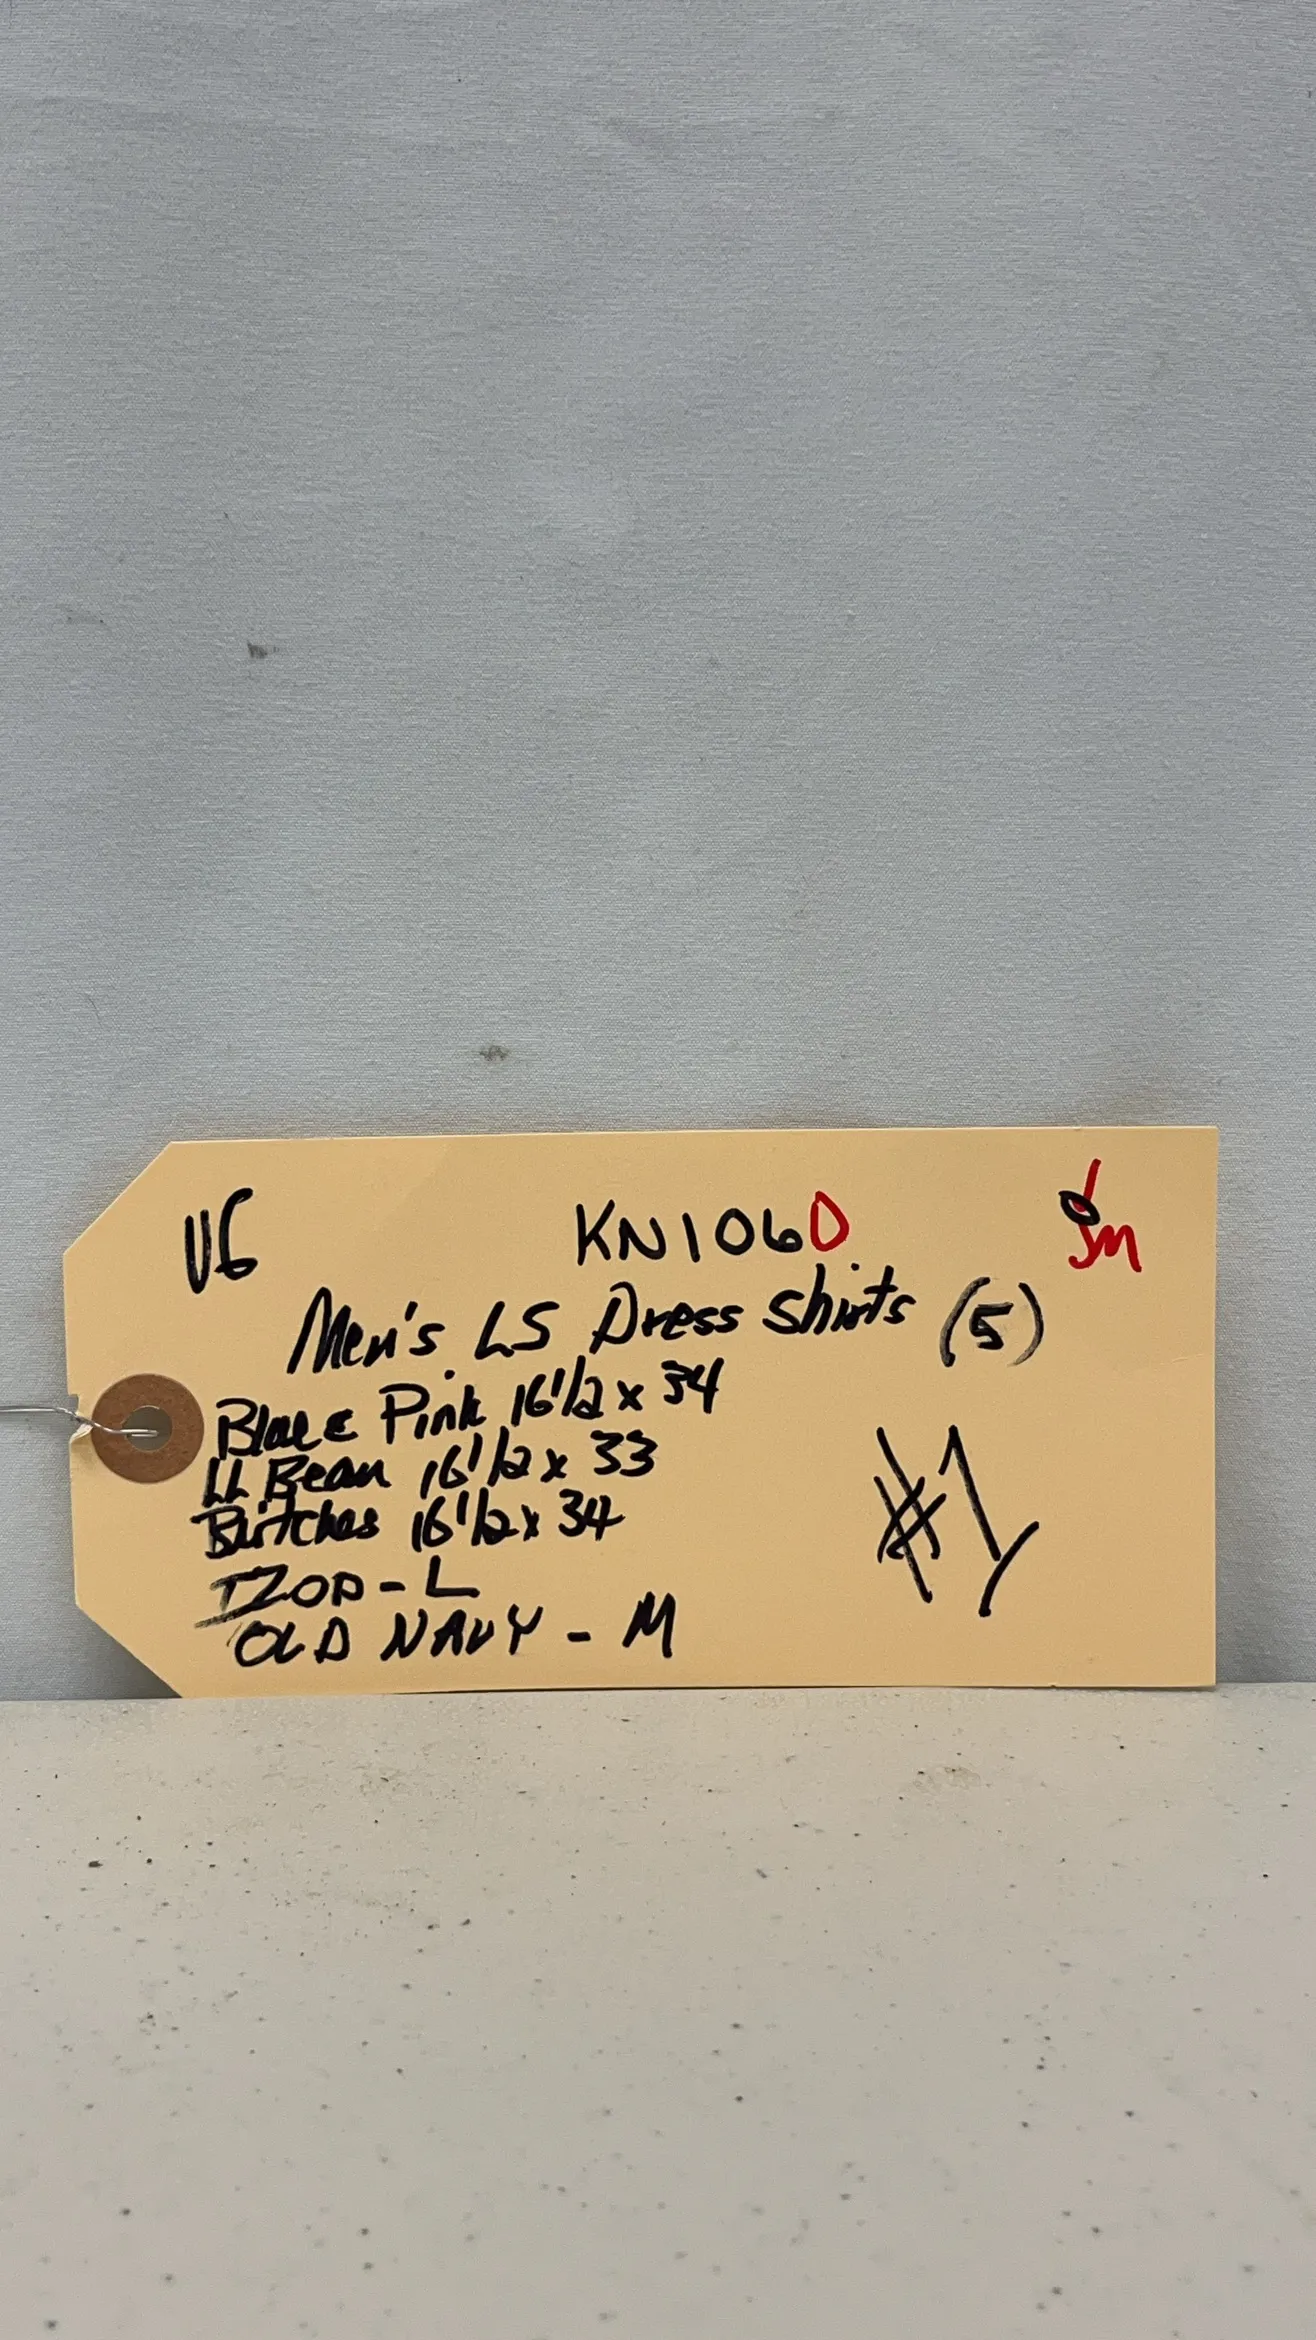 VG KN106D JM
Men's LS Dress Shirts (5)
Pink 16 1/2 x 34
LL Bean 16 1/2 x 33
16 1/2 x 34
IZOD - L
OLD NAVY - M
#1